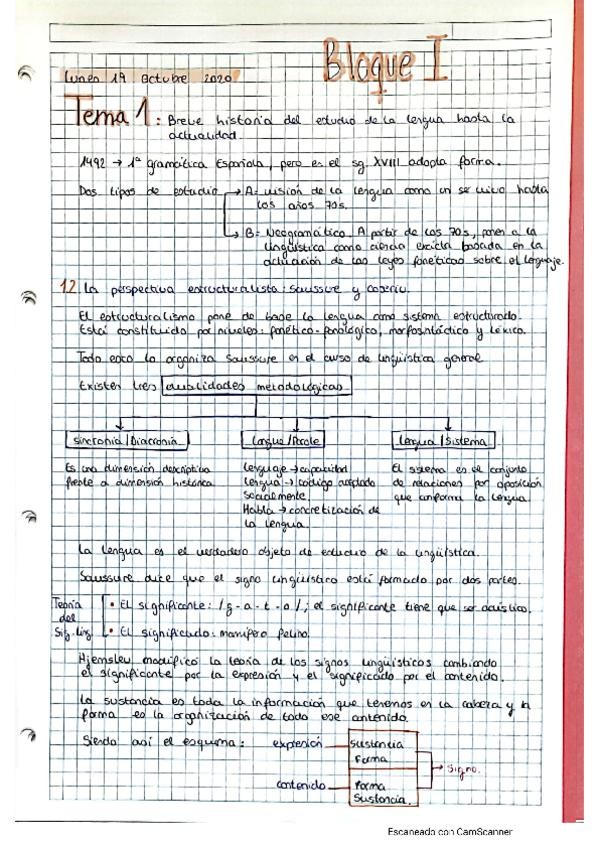 Bloque I
Lunes 19 Octubre 2020
Tema 1: Breve historia del estudio de la lengua hasta la
actualidad.
1492 → 1ª gramática Española, pero es el sg. XVIII adopta forma.
Dos tipos de estudio → A= visión de la lengua como un ser vivo hasta
los años 70s.
→ B= Neogramático. A partir de los 70s, ponen a la
lingüística como ciencia exacta basada en la
actuación de las leyes fonéticas sobre el lenguaje.
1.2 La perspectiva estructuralista: saussure y coseriu.
El estructuralismo pone de base la lengua como sistema estructurado.
Está constituida por niveles: fonético-fonológico, morfosintáctico y léxico.
Todo esto lo organiza Saussure en el curso de lingüística general
Existen tres dualidades metodológicas
Sincronía/Diacronía
Es una dimensión descriptiva
frente a dimensión histórica.
Langue/Parole
Lenguaje → capacidad
Lengua → código adoptado
socialmente.
Habla → concretización de
la lengua.
Lengua/Sistema
El sistema es el conjunto
de relaciones por oposición
que conforma la lengua.
La lengua es el verdadero objeto de estudio de la lingüística.
Saussure dice que el signo lingüístico está formado por dos partes.
Teoría
del
Sig. ling.
• El significante: /g-a-t-o/; el significante tiene que ser acústico.
• El significado: mamífero felino.
Hjemslev modificó la teoría de los signos lingüísticos cambiando
el significante por la expresión y el significado por el contenido.
La sustancia es toda la información que tenemos en la cabeza y la
forma es la organización de todo ese contenido.
Siendo así el esquema: expresión Sustancia
Forma
→ Signo.
contenido Forma
Sustancia.
Escaneado con CamScanner